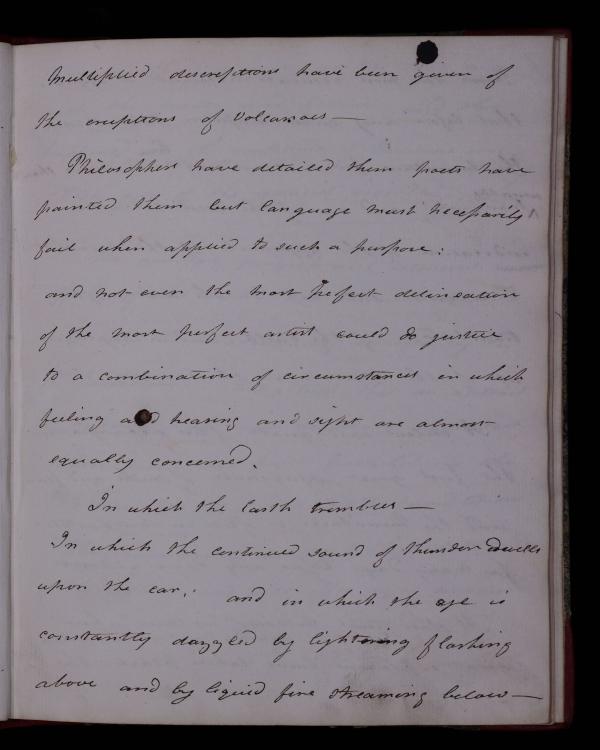 Multiplied descreptions have been given of
the eruptions of Volcanoes —
Philosophers have detailed them poets have
painted them but language must necessarily
fail when applied to such a purpose:
and not even the most perfect delineation
of the most perfect artist could do justice
to a combination of circumstances in which
feeling and hearing and sight are almost
equally concerned.
In which the Earth trembles —
In which the continued sound of thunder dwells
upon the ear; and in which the eye is
constantly dazzled by lightening flashing
above and by liquid fire streaming below —